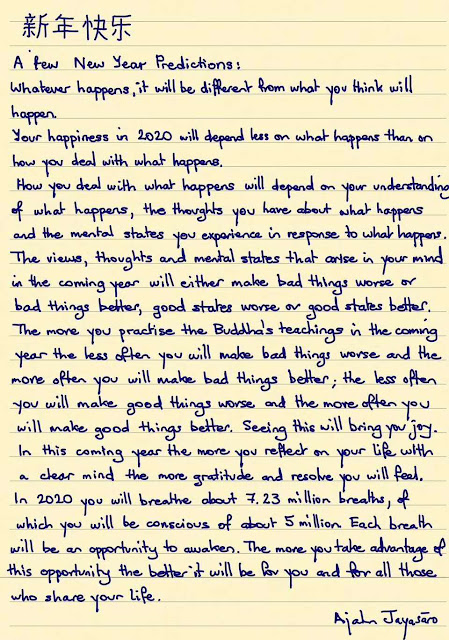 新年快乐
A few New Year Predictions:
Whatever happens, it will be different from what you think will
happen.
Your happiness in 2020 will depend less on what happens than on
how you deal with what happens.
How you deal with what happens will depend on your understanding
of what happens, the thoughts you have about what happens
and the mental states you experience in response to what happens.
The views, thoughts and mental states that arise in your mind
in the coming year will either make bad things worse or
bad things better, good states worse or good states better.
The more you practise the Buddha's teachings in the coming
year the less often you will make bad things worse and the
more often you will make bad things better; the less often
you will make good things worse and the more often you
will make good things better. Seeing this will bring you joy.
In this coming year the more you reflect on your life with
a clear mind the more gratitude and resolve you will feel.
In 2020 you will breathe about 7.23 million breaths, of
which you will be conscious of about 5 million. Each breath
will be an opportunity to awaken. The more you take advantage of
this opportunity the better it will be for you and for all those
who share your life.
Ajahn Jayasāro